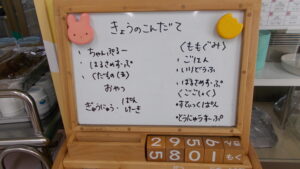 きょうのこんだて
・ちゃんぷるー
・はるさめすーぷ
・くだもの(る)
おやつ
ぎゅうにゅう・ぱんけーき
(ももぐみ)
・ごはん
・いりどうふ
・はるさめすーぷ
(ごごしょく)
・すてぃっくぱん
・とうにゅうすーぷ
2 9 5
5 8 0 1 もく